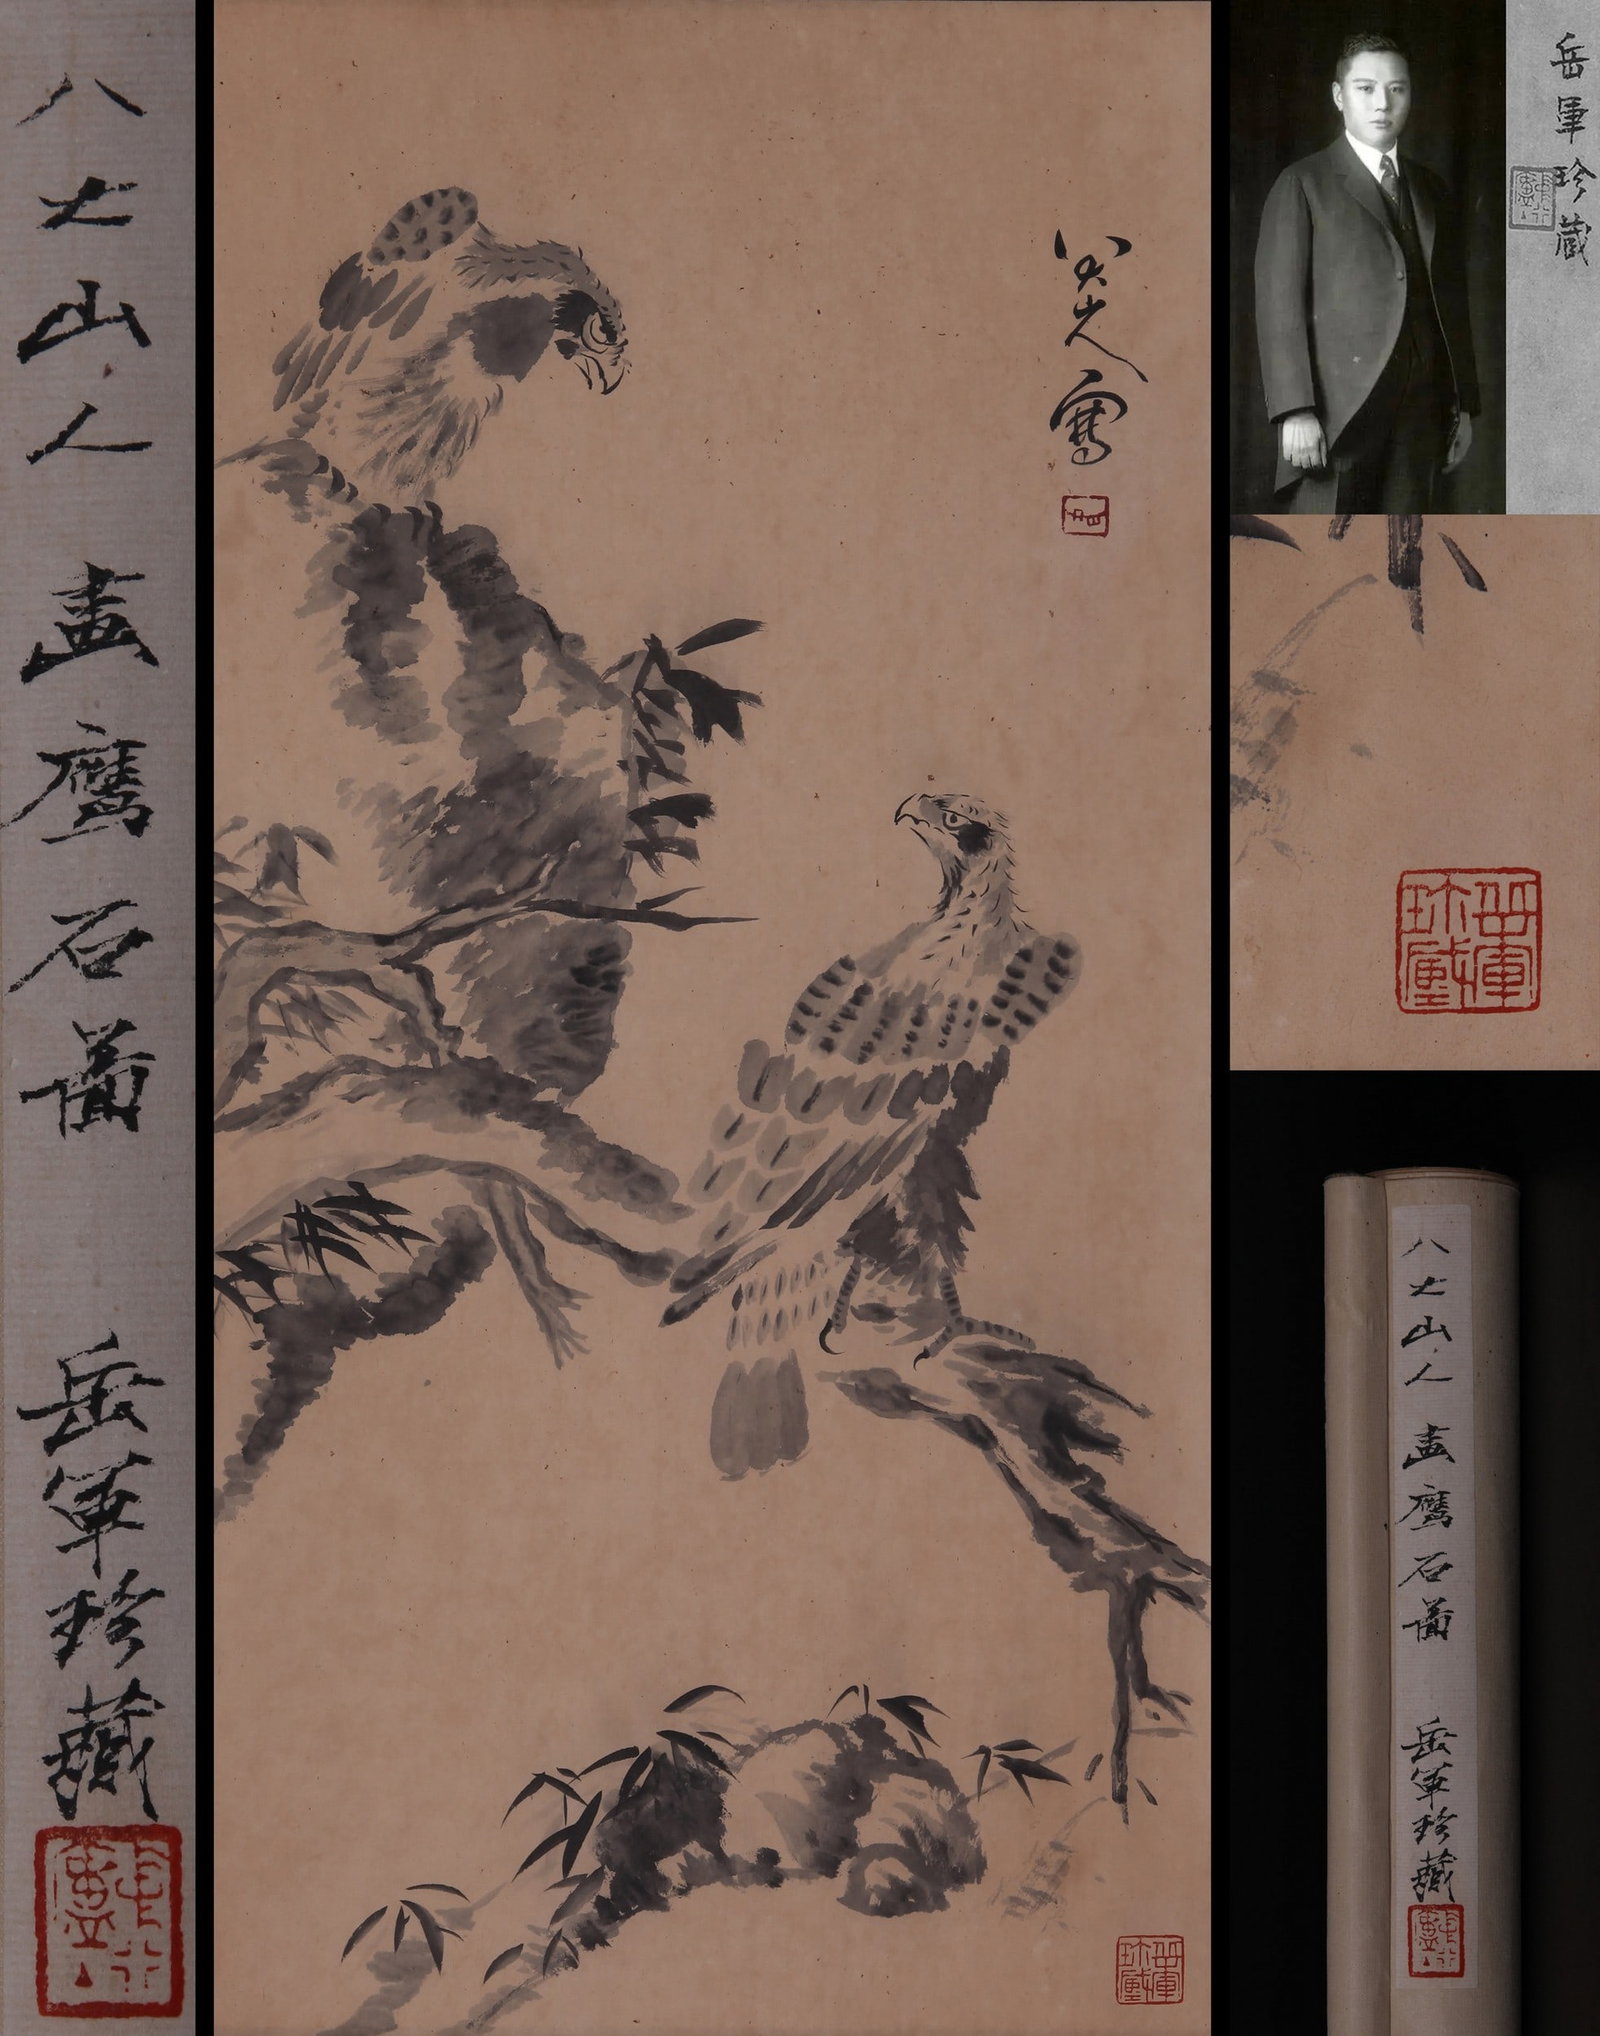 八大山人畫鷹石圖 岳軍珍藏
八大山人寫
岳軍珍藏
岳軍珍藏
岳軍珍藏
八大山人畫鷹石圖 岳軍珍藏